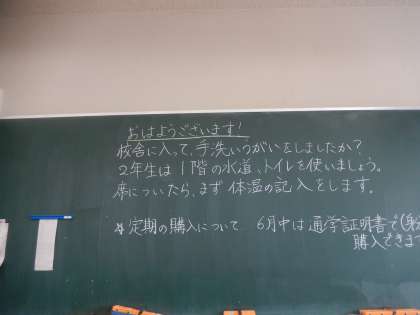 おはようございます!
校舎に入って、手洗いうがいをしましたか?
2年生は1階の水道、トイレを使いましょう。
席についたら、まず体温の記入をします。
定期の購入について 6月中は通学証明書で(
購入できます